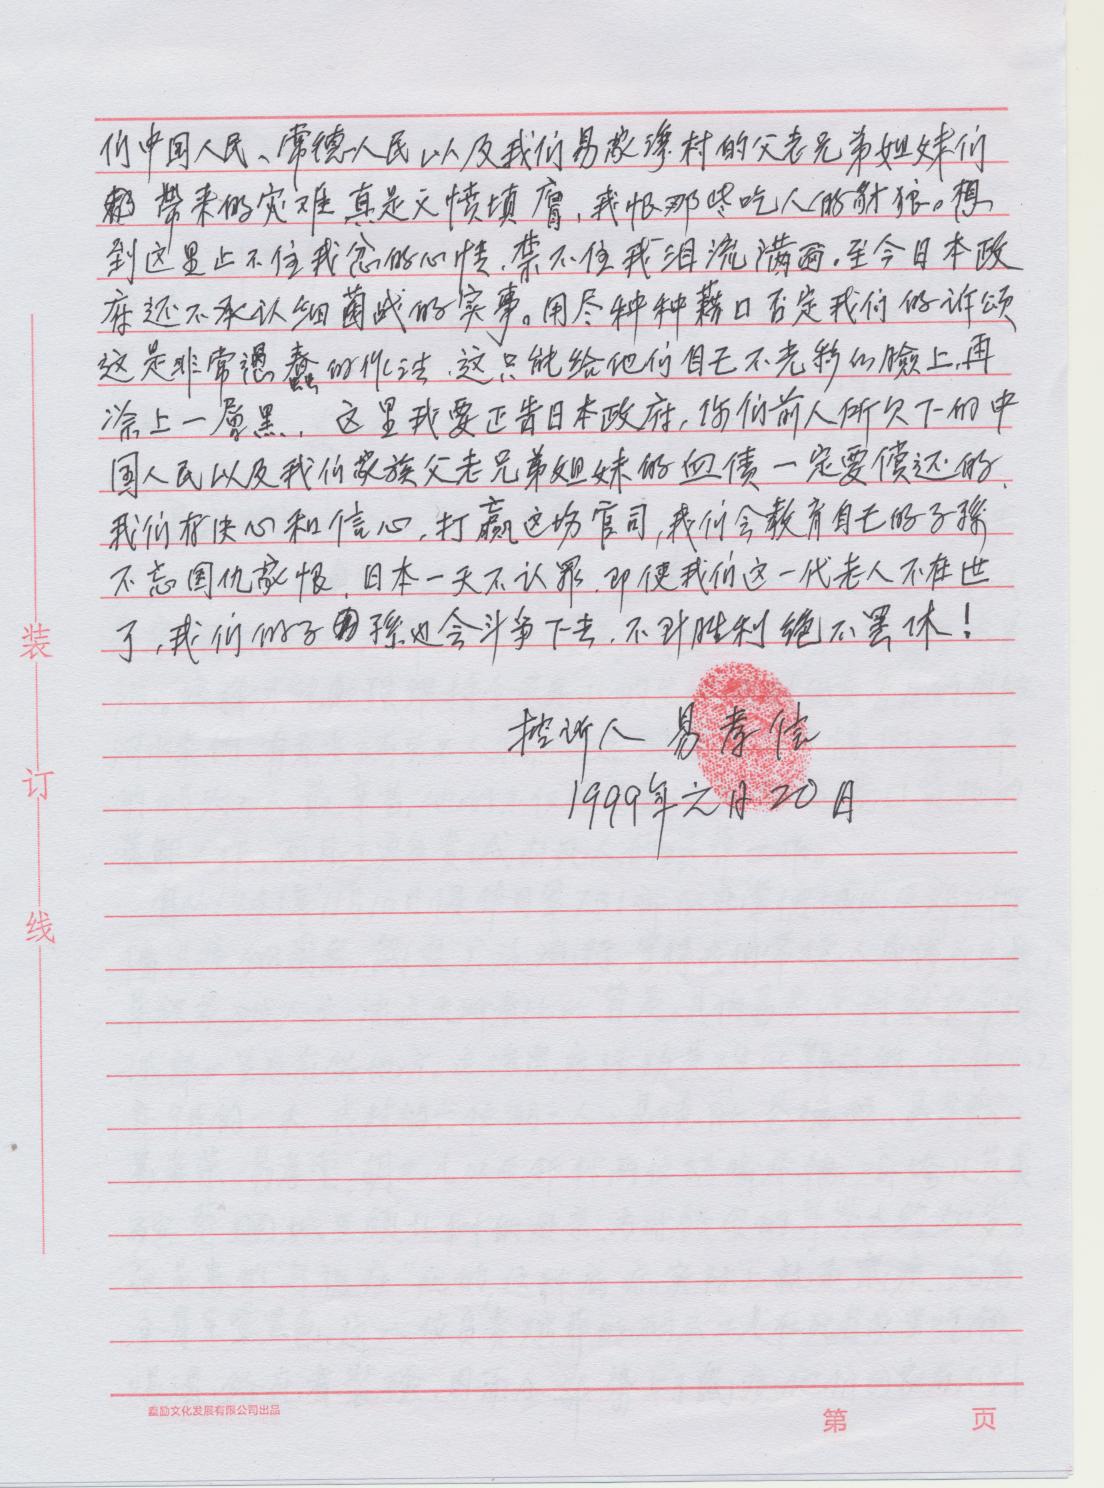 们中国人民、常德人民以及我们易家湾村的父老兄弟姐妹们
带来的灾难真是义愤填膺，我恨那些吃人的豺狼。想
到这里止不住我忿的心情，禁不住我泪流满面。至今日本政
府还不承认细菌战的实事。用尽种种藉口否定我们的诉颂
这是非常愚蠢的作法，这只能给他们自己不光彩的臉上，再
涂上一層黑，这里我要正告日本政府，你们前人所欠下的中
国人民以及我们家族父老兄弟姐妹的血债一定要偿还的，
我们有决心和信心，打赢这场官司，我们会教育自己的子孫
不忘国仇家恨，日本一天不认罪，即使我们这一代老人不在世
了，我们的子孫也会斗争下去，不到胜利绝不罢休！
控诉人 易孝信
1999年元月20日
装
订
线
磊励文化发展有限公司出品
第 页